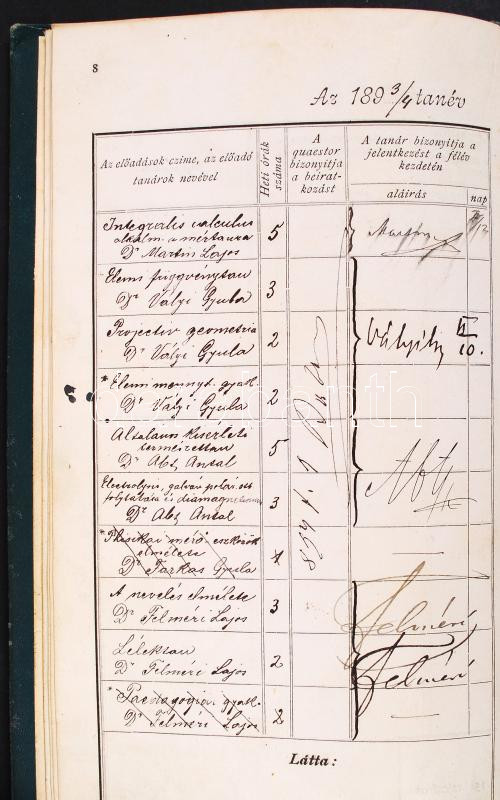 8
Az 189 3/4 tanév
Az előadások czime, az előadó
tanárok nevével
Heti órák
száma
A
quaestor
bizonyítja
a beirat-
kozást
A tanár bizonyítja a
jelentkezést a félév
kezdetén
aláírás
nap
Integralis calculus
alkalm. a mértanra
Dr Martin Lajos
5
Elemi függvénytan
Dr Vályi Gyula
3
Projectiv geometria
Dr Vályi Gyula
2
Vályi Gy
II
10.
* Elemi mennyt. gyak.
Dr Vályi Gyula
2
Általános kisérleti
természettan
Dr Abt Antal
5
Abt
Electrolysis, galván polár.
folytatása és diamagnetismus
Dr Abt Antal
3
* Phisikai mérő eszközök
elmélete
Dr Farkas Gyula
A nevelés elmélete
Dr Felméri Lajos
3
Felméri
Lélektan
Dr Felméri Lajos
2
Felméri
* Paedagogiai gyak.
Dr Felméri Lajos
2
Látta: